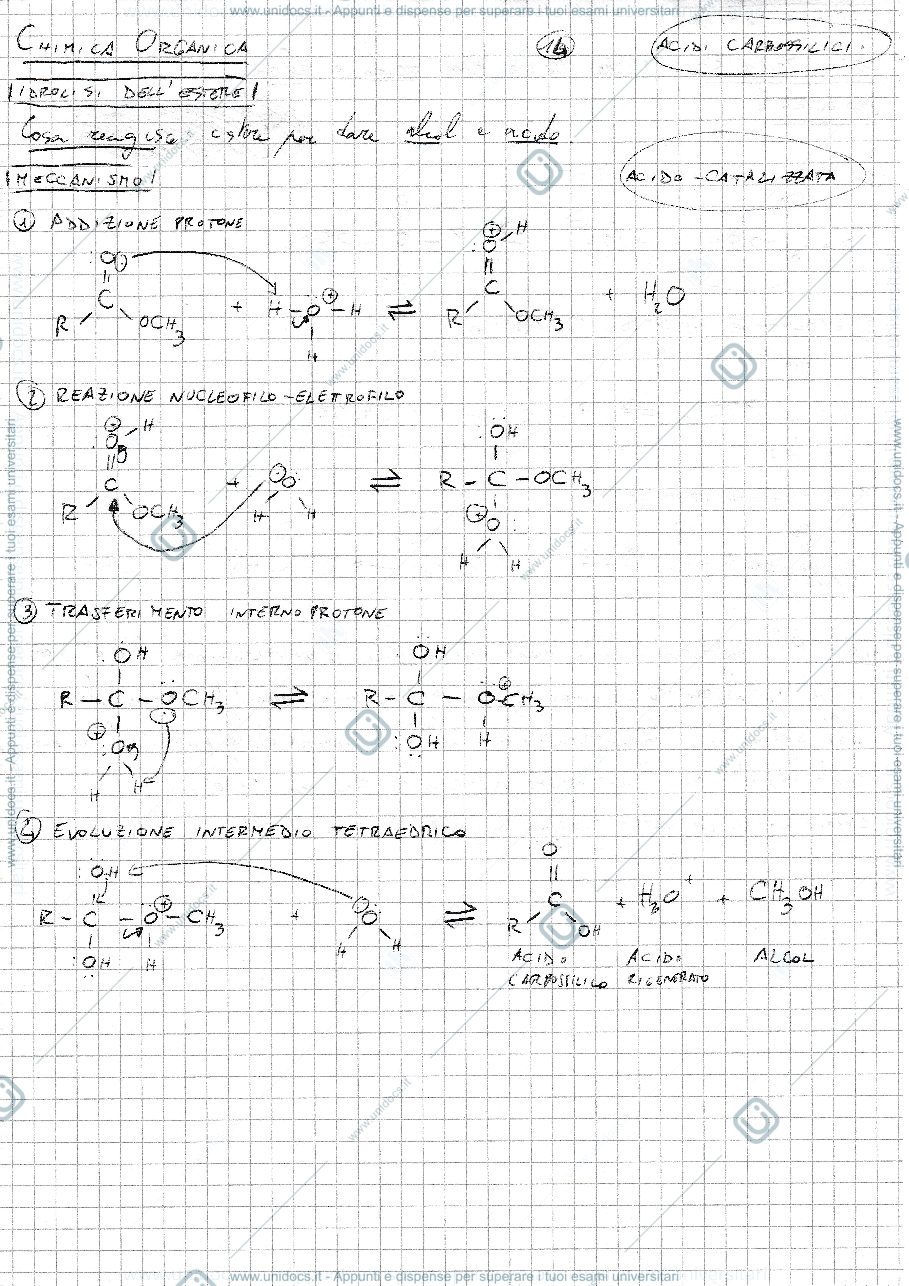 www.unidocs.it - Appunti e dispense per superare i tuoi esami universitari
CHIMICA ORGANICA
14
ACIDI CARBOSSILICI.
IDROLISI DELL'ESTERE
Cosa reagisce estere per dare alcol e acido.
MECCANISMO
ACIDO-CATALIZZATA
① ADDIZIONE PROTONE
O
C
R OCH3
+ H-O-H
H
⇌
O H
C
R OCH3
+ H2O
② REAZIONE NUCLEOFILO-ELETTROFILO
O H
C
R OCH3
+ O
H H
⇌
OH
R - C - OCH3
O
H H
③ TRASFERIMENTO INTERNO PROTONE
OH
R - C - OCH3
O
H H
⇌
OH
R - C - OCH3
OH H
④ EVOLUZIONE INTERMEDIO TETRAEDRICO
OH
R - C - O - CH3
OH H
+ O
H H
⇌
O
C
R OH
+ H3O+ + CH3OH
ACIDO ACIDO ALCOL
CARBOSSILICO RIGENERATO
www.unidocs.it - Appunti e dispense per superare i tuoi esami universitari